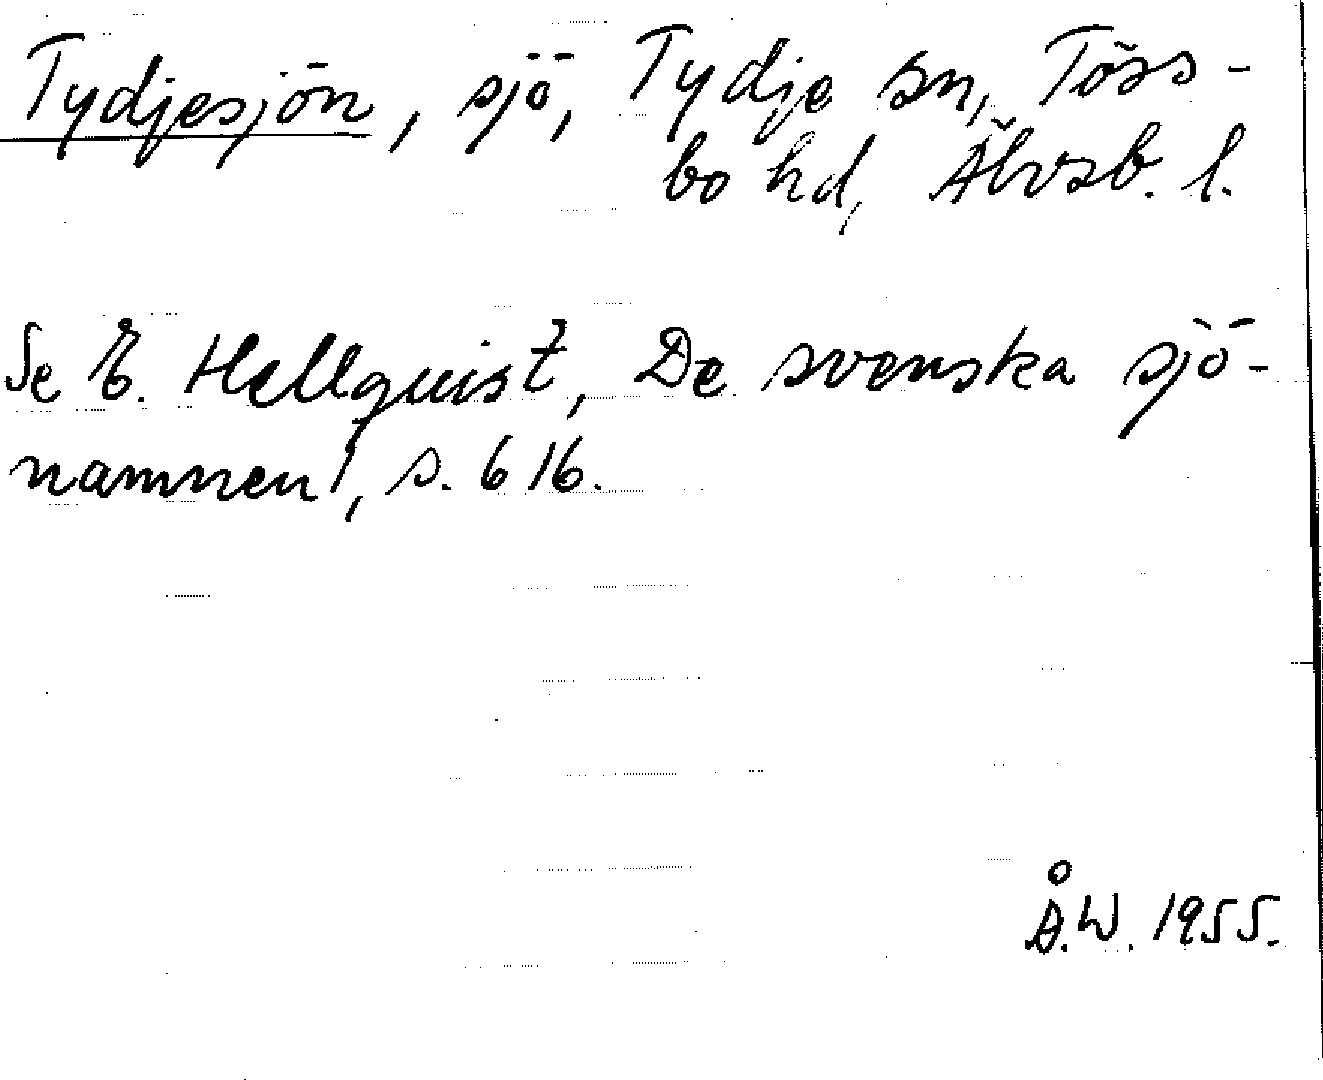 Tydjesjön, sjö, Tydje sn, Töss-
bo hd, Älvsb. l.
Se E. Hellquist, De svenska sjö-
namnen 1, s. 616.
Å.W. 1955.